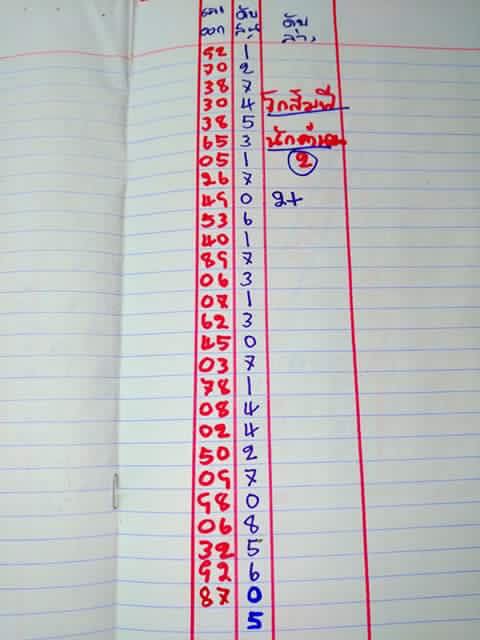 เลข ดับ ดับ
ออก สิบ ล่าง
92 1
70 2
38 7
30 4 โกสัมพี
38 5
65 3 นักคำนวน
05 1 2
26 7
49 0 2+
53 6
40 1
89 7
06 3
07 1
62 3
45 0
03 7
78 1
08 4
02 4
50 2
09 7
98 0
06 8
32 5
92 6
87 0
5